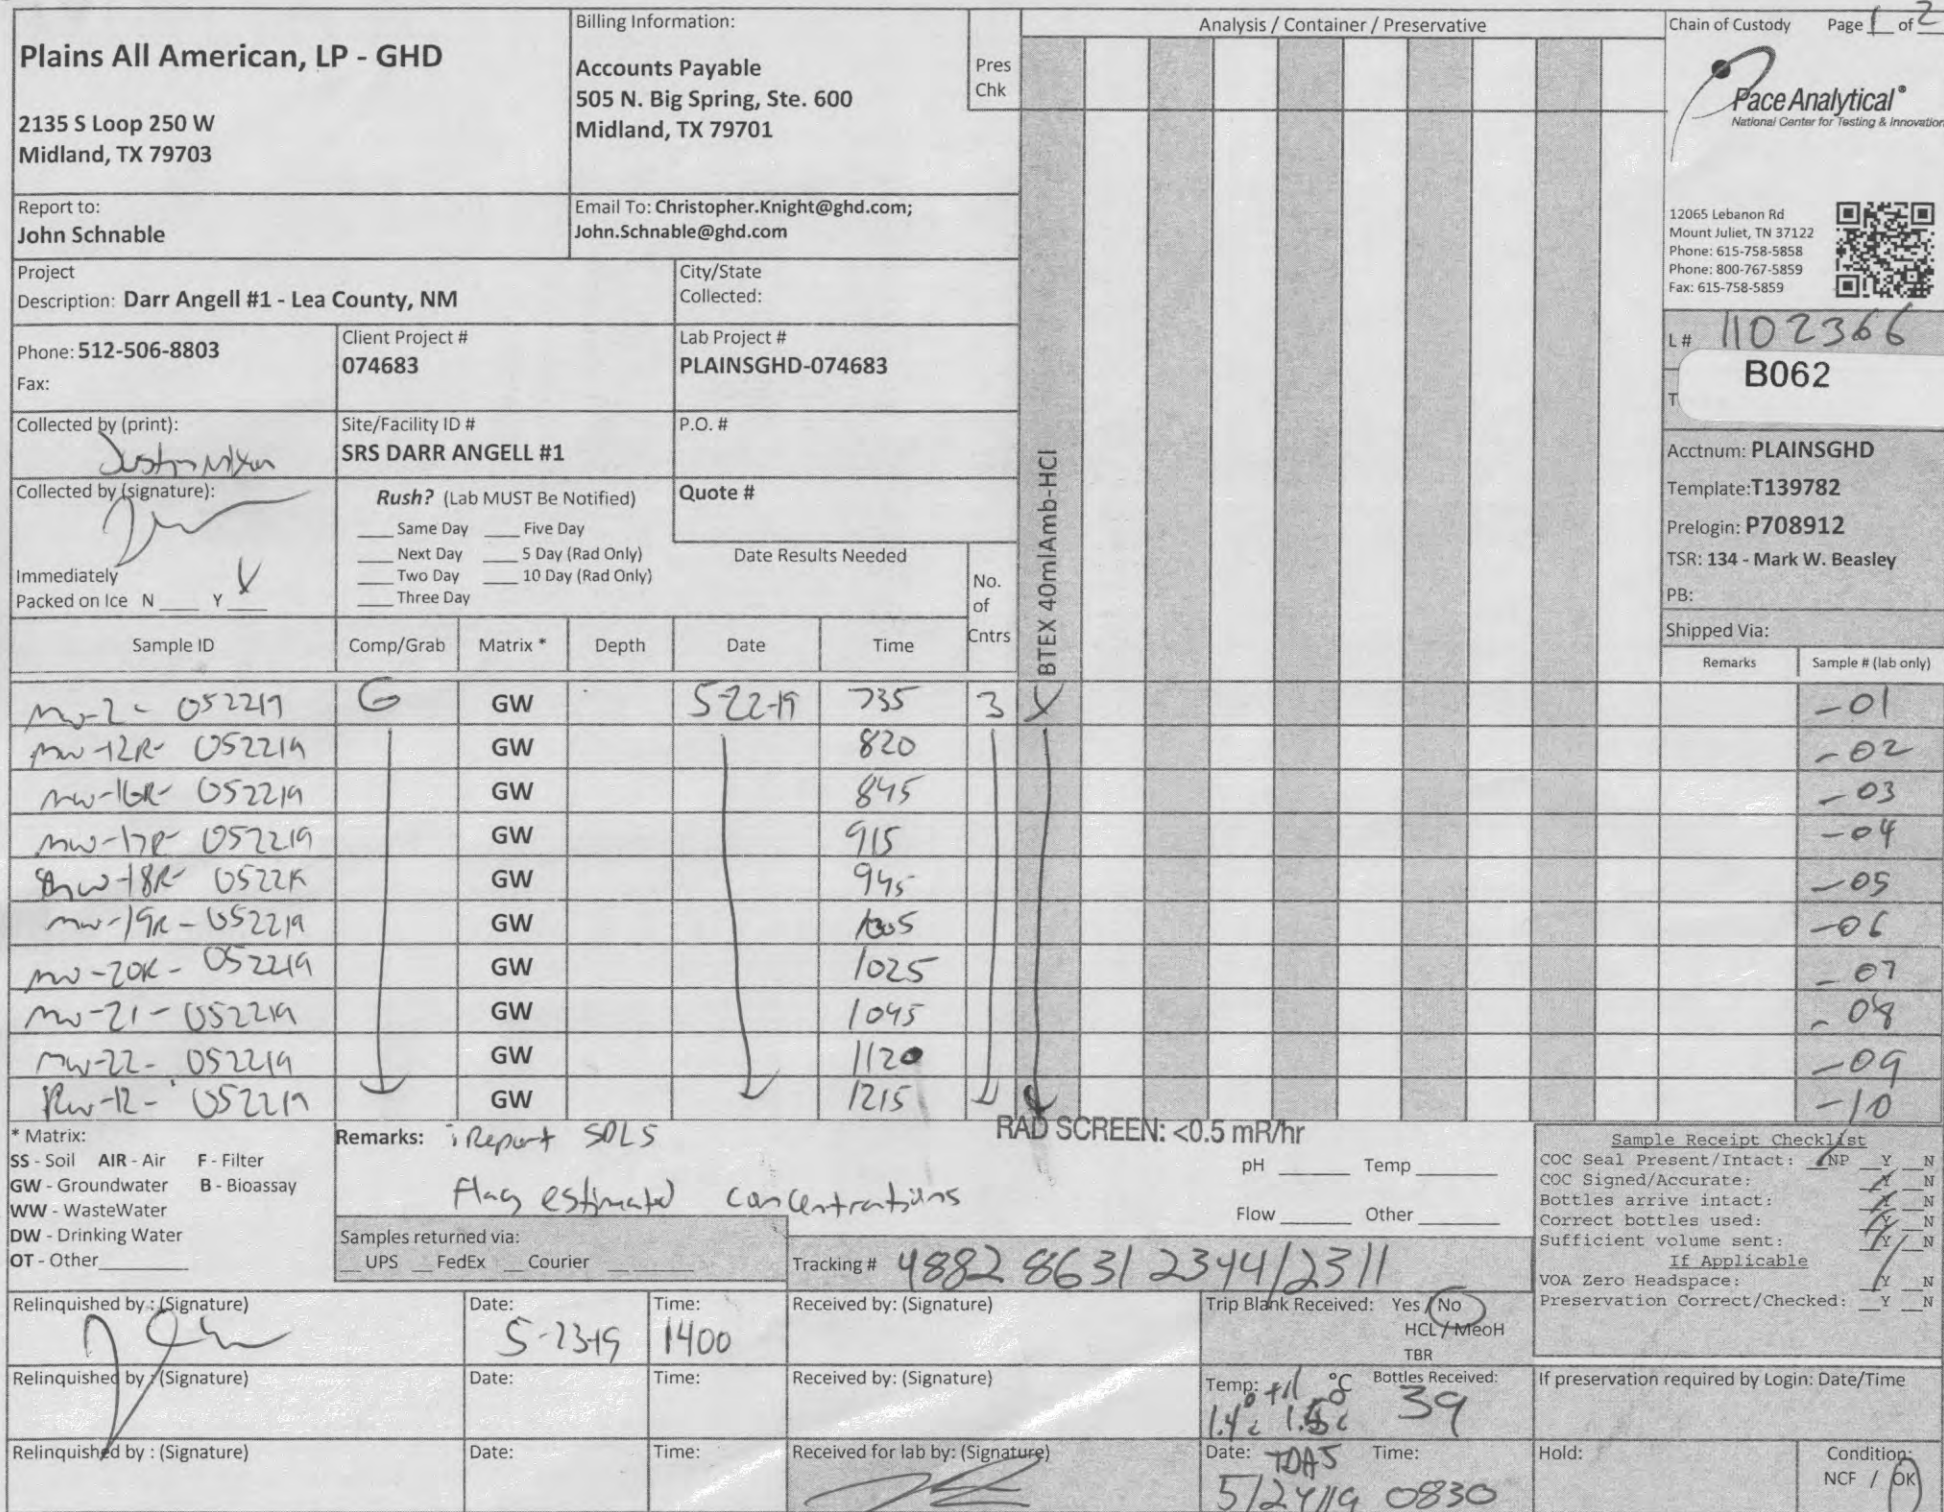 Plains All American, LP - GHD
2135 S Loop 250 W
Midland, TX 79703
Billing Information:
Accounts Payable
505 N. Big Spring, Ste. 600
Midland, TX 79701
Pres
Chk
Analysis / Container / Preservative
Chain of Custody Page 1 of 2
Pace Analytical®
National Center for Testing & Innovation
12065 Lebanon Rd
Mount Juliet, TN 37122
Phone: 615-758-5858
Phone: 800-767-5859
Fax: 615-758-5859
Report to:
John Schnable
Email To: Christopher.Knight@ghd.com;
John.Schnable@ghd.com
Project
Description: Darr Angell #1 - Lea County, NM
City/State
Collected:
Phone: 512-506-8803
Fax:
Client Project #
074683
Lab Project #
PLAINSGHD-074683
L# 1102366
B062
T
Collected by (print):
Justin Nixon
Site/Facility ID #
SRS DARR ANGELL #1
P.O. #
Acctnum: PLAINSGHD
Template:T139782
Prelogin: P708912
TSR: 134 - Mark W. Beasley
PB:
Shipped Via:
Collected by (signature):
Rush? (Lab MUST Be Notified)
___ Same Day ___ Five Day
___ Next Day ___ 5 Day (Rad Only)
___ Two Day ___ 10 Day (Rad Only)
___ Three Day
Quote #
Date Results Needed
Immediately
Packed on Ice N ___ Y ___
No.
of
Cntrs
BTEX 40mlAmb-HCl
Sample ID Comp/Grab Matrix * Depth Date Time Remarks Sample # (lab only)
MW-2- 052219 G GW 5-22-19 735 3 X -01
MW-12R- 052219 GW 820 -02
MW-16R- 052219 GW 845 -03
MW-17R- 052219 GW 915 -04
MW-18R- 052219 GW 945 -05
MW-19R- 052219 GW 1005 -06
MW-20R- 052219 GW 1025 -07
MW-21- 052219 GW 1045 -08
MW-22- 052219 GW 1120 -09
RW-12- 052219 GW 1215 -10
* Matrix:
SS - Soil AIR - Air F - Filter
GW - Groundwater B - Bioassay
WW - WasteWater
DW - Drinking Water
OT - Other
Remarks: Report SDLs
Flag estimated concentrations
RAD SCREEN: <0.5 mR/hr
pH ______ Temp ______
Flow ______ Other ______
Samples returned via:
__ UPS __ FedEx __ Courier ______
Tracking # 4882 8631 2344/2311
Sample Receipt Checklist
COC Seal Present/Intact: NP _Y _N
COC Signed/Accurate: Y _N
Bottles arrive intact: Y _N
Correct bottles used: Y _N
Sufficient volume sent: Y _N
If Applicable
VOA Zero Headspace: Y _N
Preservation Correct/Checked: _Y _N
Relinquished by : (Signature)
Date: 5-23-19
Time: 1400
Received by: (Signature)
Trip Blank Received: Yes / No
HCL / MeoH
TBR
Relinquished by : (Signature)
Date:
Time:
Received by: (Signature)
Temp: °C
Bottles Received: 39
If preservation required by Login: Date/Time
Relinquished by : (Signature)
Date:
Time:
Received for lab by: (Signature)
Date: 5/24/19
Time: 0830
Hold:
Condition:
NCF / OK